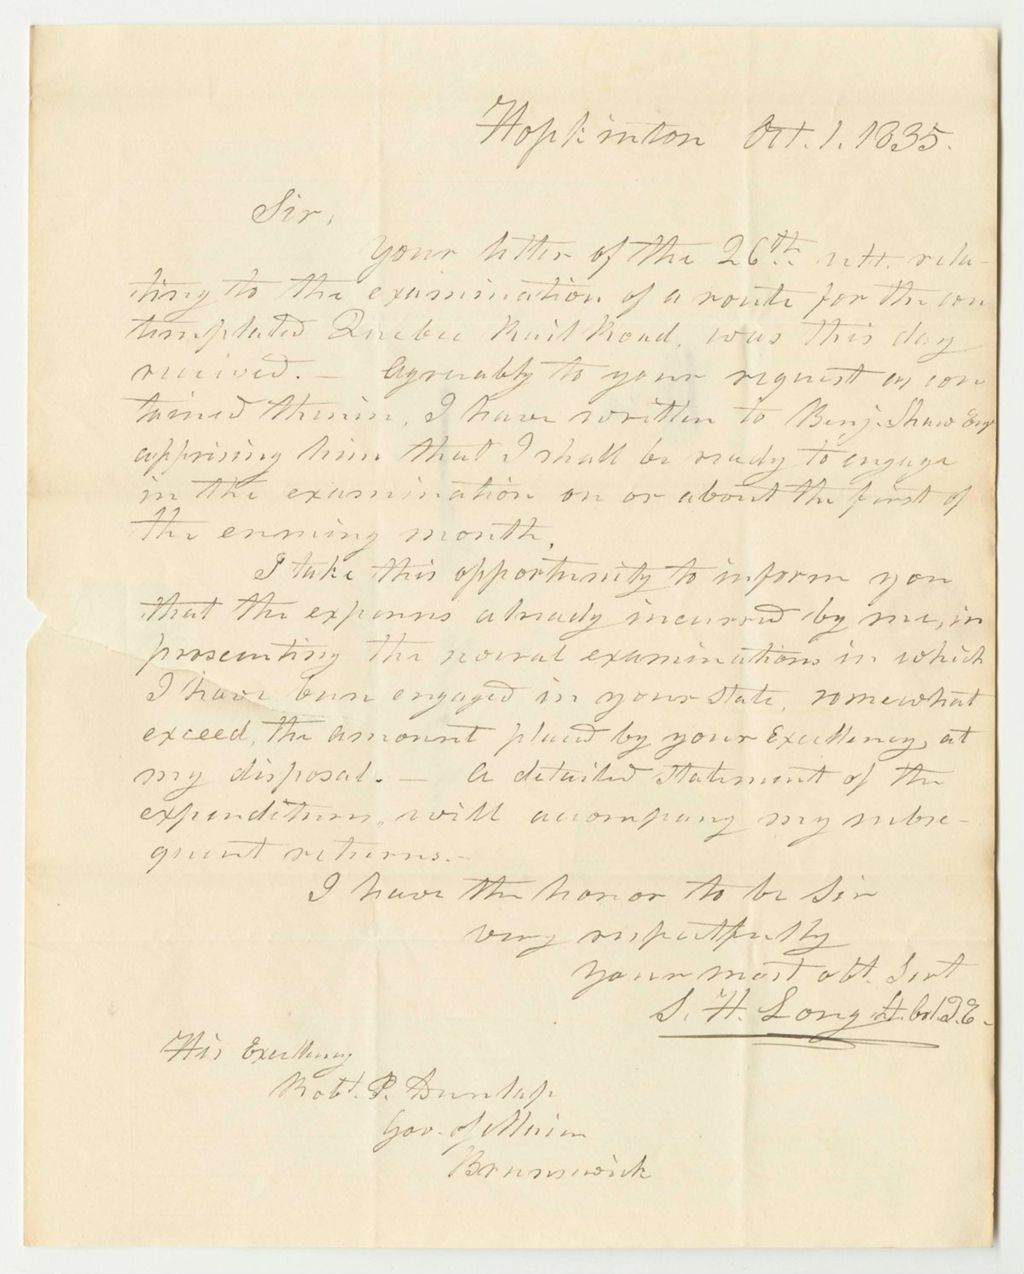 Hopkinton Oct. 1. 1835.
Sir,
Your letter of the 26th. ult. rela-
ting to the examination of a route for the con
templated Quebec Rail Road, was this day
received. — Agreeably to your request as con
tained therein, I have written to Benj. Shaw Esqr
apprising him that I shall be ready to engage
in the examination on or about the first of
the ensuing month.
I take this opportunity to inform you
that the expenses already incurred by me, in
prosecuting the several examinations in which
I have been engaged in your State, somewhat
exceed, the amount placed by your Excellency, at
my disposal. — A detailed statement of the
expenditures, will accompany my subse-
quent returns. —
I have the honor to be Sir
very respectfully
Your most obt. Servt
S. H. Long Lt. Col. T.E.
His Excellency
Robt. P. Dunlap
Gov. of Maine
Brunswick